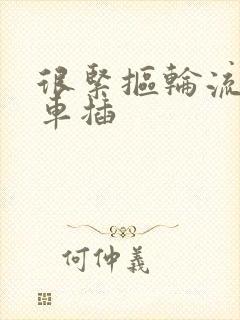 很緊摳輪流
車插
何仲義